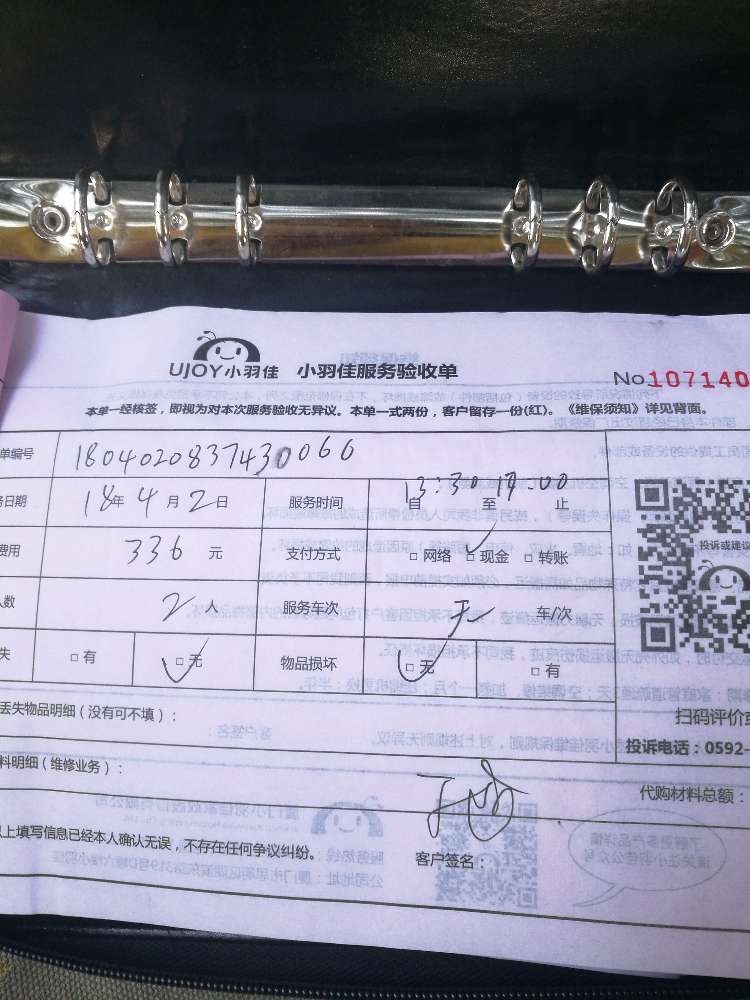 UJOY小羽佳 小羽佳服务验收单
No.107140
本单一经核签，即视为对本次服务验收无异议。本单一式两份，客户留存一份(红)。《维保须知》详见背面。
单编号 1804020837430066
务日期 18年 4月 2日 服务时间 13:30自 至 17:00止
费用 336 元 支付方式 □网络 □现金 □转账
人数 2 人 服务车次 无 车/次
失 □有 □无 物品损坏 □无 □有
投诉或建议
扫码评价或
投诉电话：0592-
丢失物品明细（没有可不填）：
料明细（维修业务）：
代购材料总额：
以上填写信息已经本人确认无误，不存在任何争议纠纷。
客户签名：